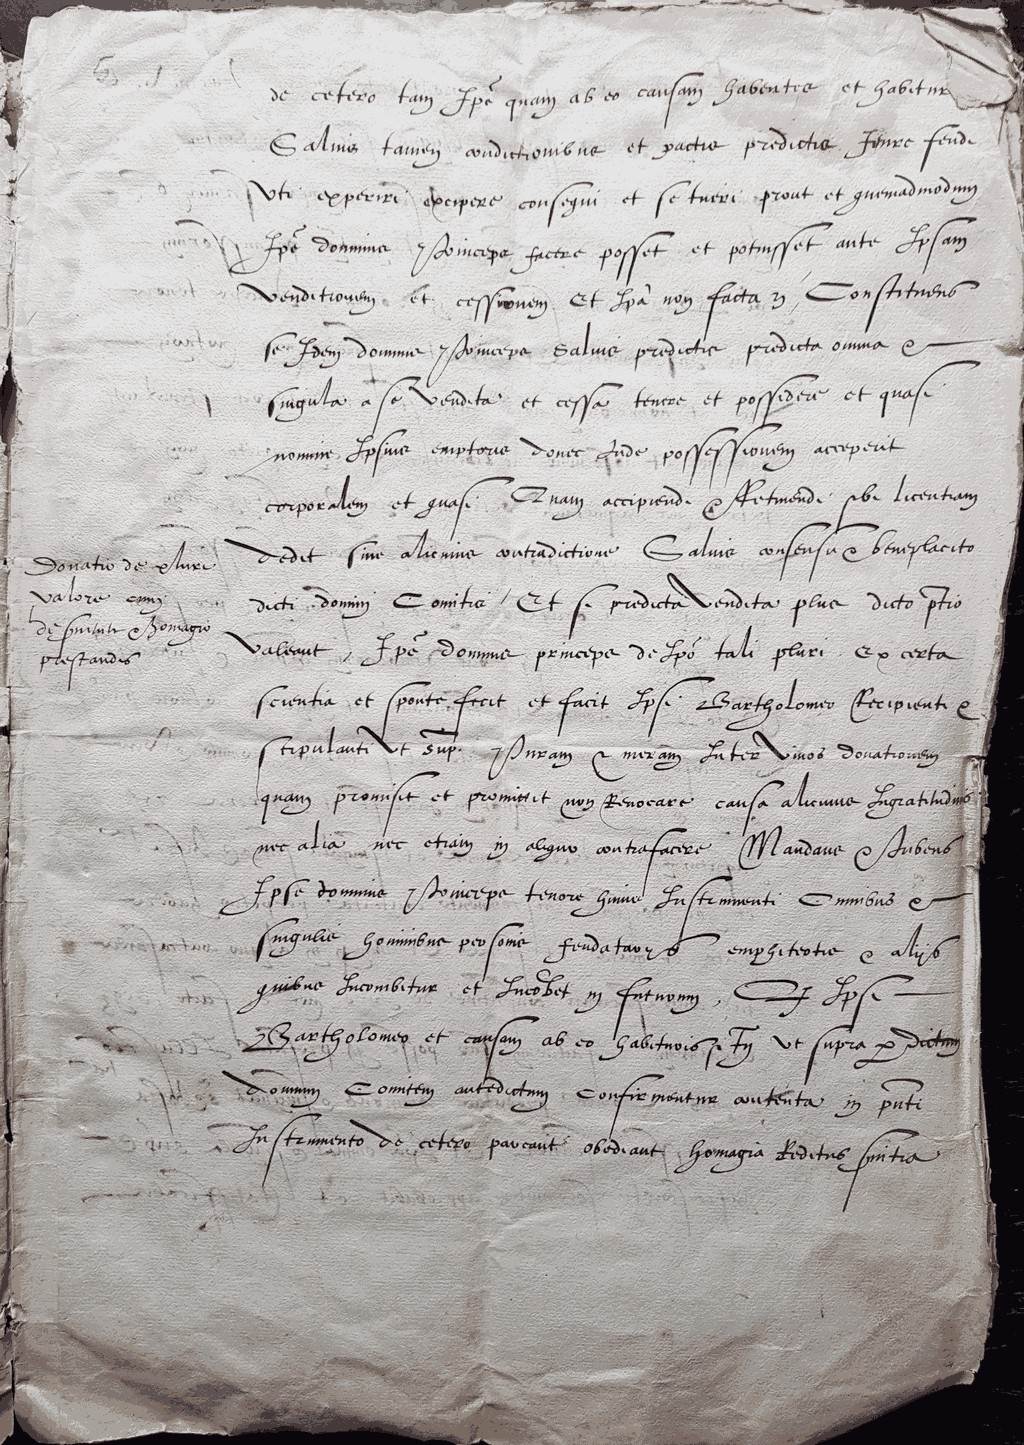 de cetero tam Ipē quam ab eo causam habentes et habitur
Salvis tamen condictionibus et pactis predictis Iure feudi
Vti experiri excipere consequi et se tueri prout et quemadmodum
Ipē dominus Princeps facere posset et potuisset ante Ipsam
venditionem et cessionem Et Ipā non facta Constituens
se Idem dominus Princeps Salvis predictis predicta omnia &
singula a se Vendita et cessa tenere et possidere et quasi
nomine Ipsius emptoris donec Inde possessionem acceperit
corporalem et quasi Quam accipiendi & Retinendi sibi licentiam
Donatio de pluri
valore cum
prestandis
dedit sine alicuius contradictione Salvis consensu & beneplacito
dicti domini Comitis / Et si predicta Vendita plus dicto ptio
Valeant, Ipē dominus princeps de Ipō tali pluri Ex certa
scientia et sponte fecit et facit Ipsi Bartholomeo Recipienti &
stipulanti Vt sup. Puram & meram Inter Vivos donationem
quam promisit et promittit non Revocare causa alicuius Ingratitudinis
nec alia nec etiam in aliquo contrafacere Mandans & Iubens
Ipse dominus Princeps tenore huius Instrumenti Omnibus &
singulis hominibus personis feudatarijs emphiteotis & alijs
quibus Incombitur et Incobet in futurum, Q Ipsi
Bartholomeo et causam ab eo habituris Vt supra p dictum
dominum Comitem antedictum Confirmentur contenta in pnti
Instrumento de cetero pareant obediant homagia Reditus svitia